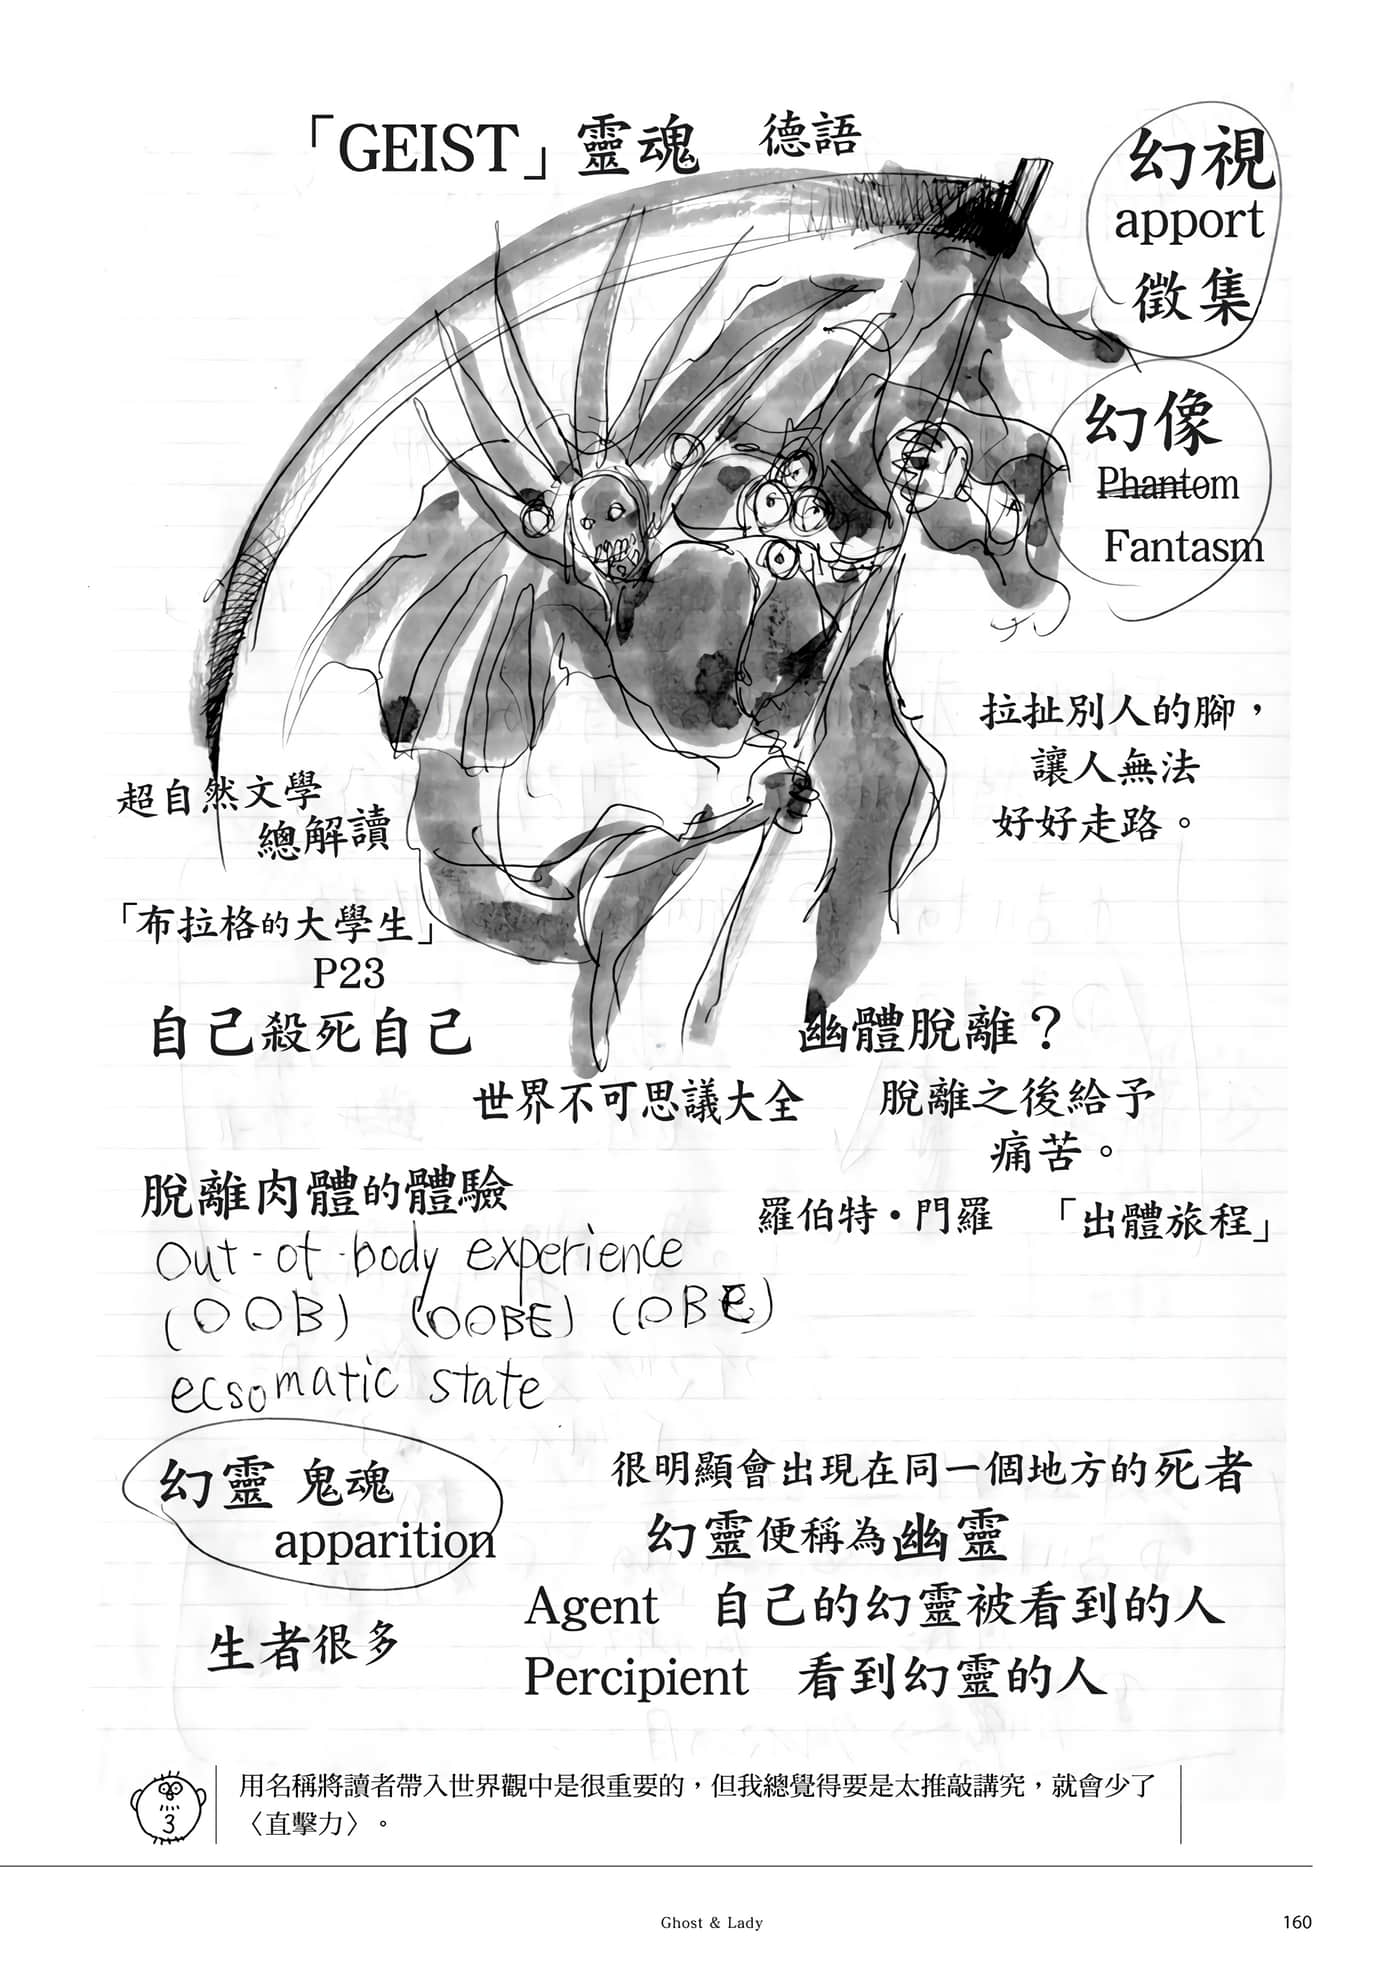 「GEIST」靈魂　德語
幻視
apport
徵集
幻像
Phantom
Fantasm
拉扯別人的腳，
讓人無法
好好走路。
超自然文學
總解讀
「布拉格的大學生」
P23
自己殺死自己
幽體脫離？
世界不可思議大全
脫離之後給予
痛苦。
脫離肉體的體驗
羅伯特・門羅　「出體旅程」
Out-of-body experience
(OOB) (OOBE) (OBE)
ecsomatic state
幻靈 鬼魂
apparition
生者很多
很明顯會出現在同一個地方的死者
幻靈便稱為幽靈
Agent　自己的幻靈被看到的人
Percipient　看到幻靈的人
用名稱將讀者帶入世界觀中是很重要的，但我總覺得要是太推敲講究，就會少了
〈直擊力〉。
Ghost & Lady
160